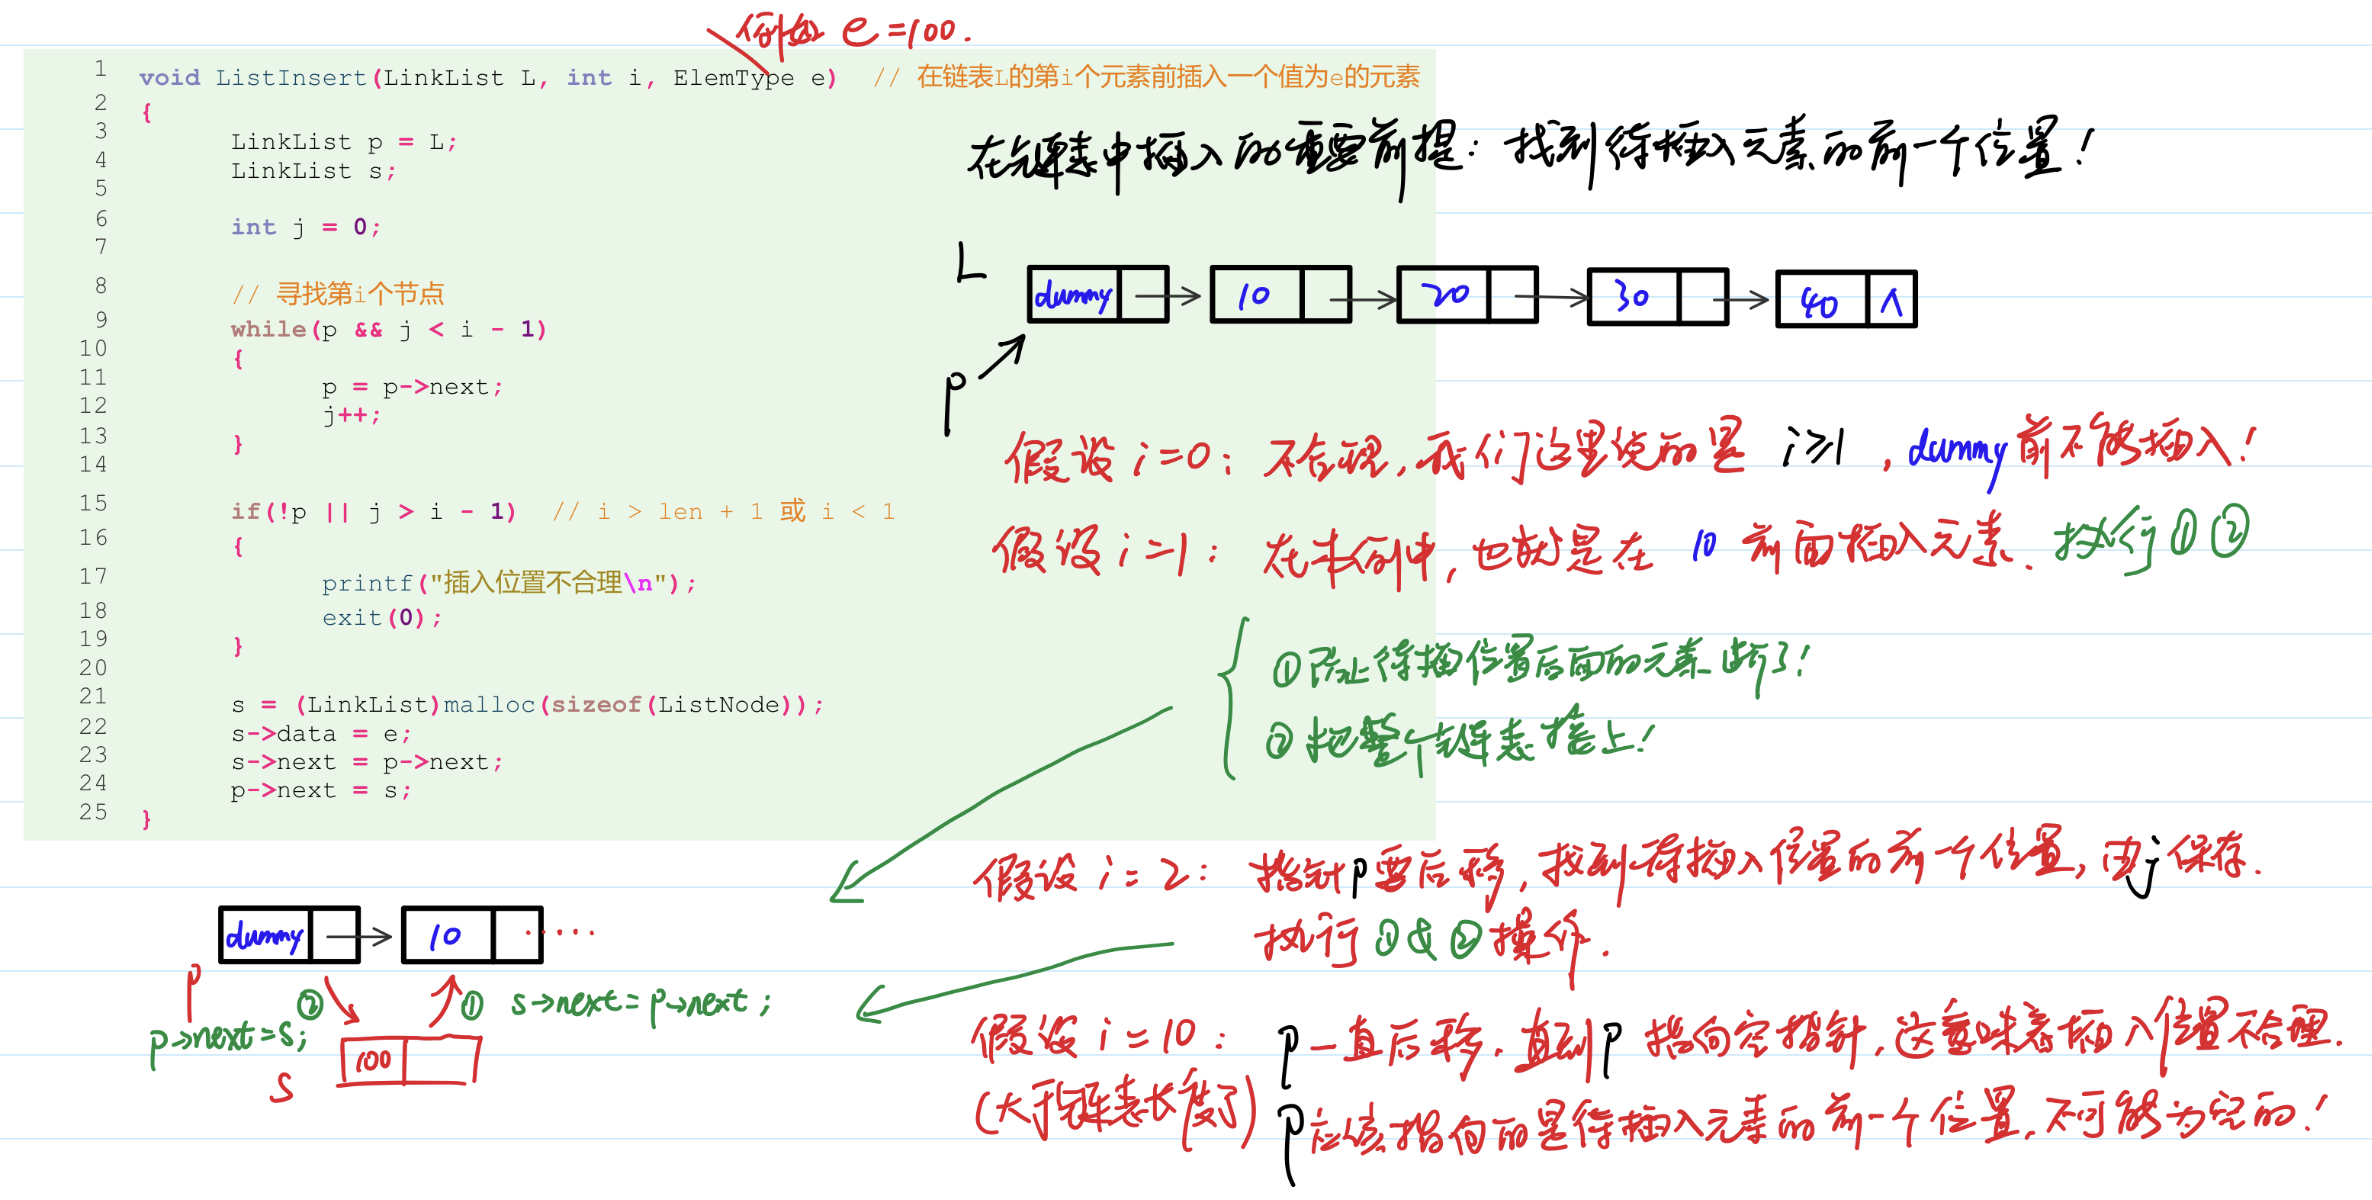 例如 e=100.
1 void ListInsert(LinkList L, int i, ElemType e) // 在链表L的第i个元素前插入一个值为e的元素
2 {
3 LinkList p = L;
4 LinkList s;
5
6 int j = 0;
7
8 // 寻找第i个节点
9 while(p && j < i - 1)
10 {
11 p = p->next;
12 j++;
13 }
14
15 if(!p || j > i - 1) // i > len + 1 或 i < 1
16 {
17 printf("插入位置不合理\n");
18 exit(0);
19 }
20
21 s = (LinkList)malloc(sizeof(ListNode));
22 s->data = e;
23 s->next = p->next;
24 p->next = s;
25 }
在链表中插入的重要前提：找到待插入元素的前一个位置！
L
dummy 10 20 30 40 ∧
p
假设 i=0：不合理，我们这里说的是 i≥1，dummy前不能插入！
假设 i=1：在本例中，也就是在 10 前面插入元素. 执行①②
①防止待插位置后面的元素断了！
②把整个链表接上！
假设 i=2：指针p要后移，找到待插入位置的前一个位置，由j保存.
执行①&②操作.
假设 i=10：p一直后移，直到p指向空指针，这意味着插入位置不合理.
(大于链表长度了) p应该指向的是待插入元素的前一个位置，不可能为空的！
dummy 10 ·····
p
② ① s->next=p->next;
p->next=s;
100
s